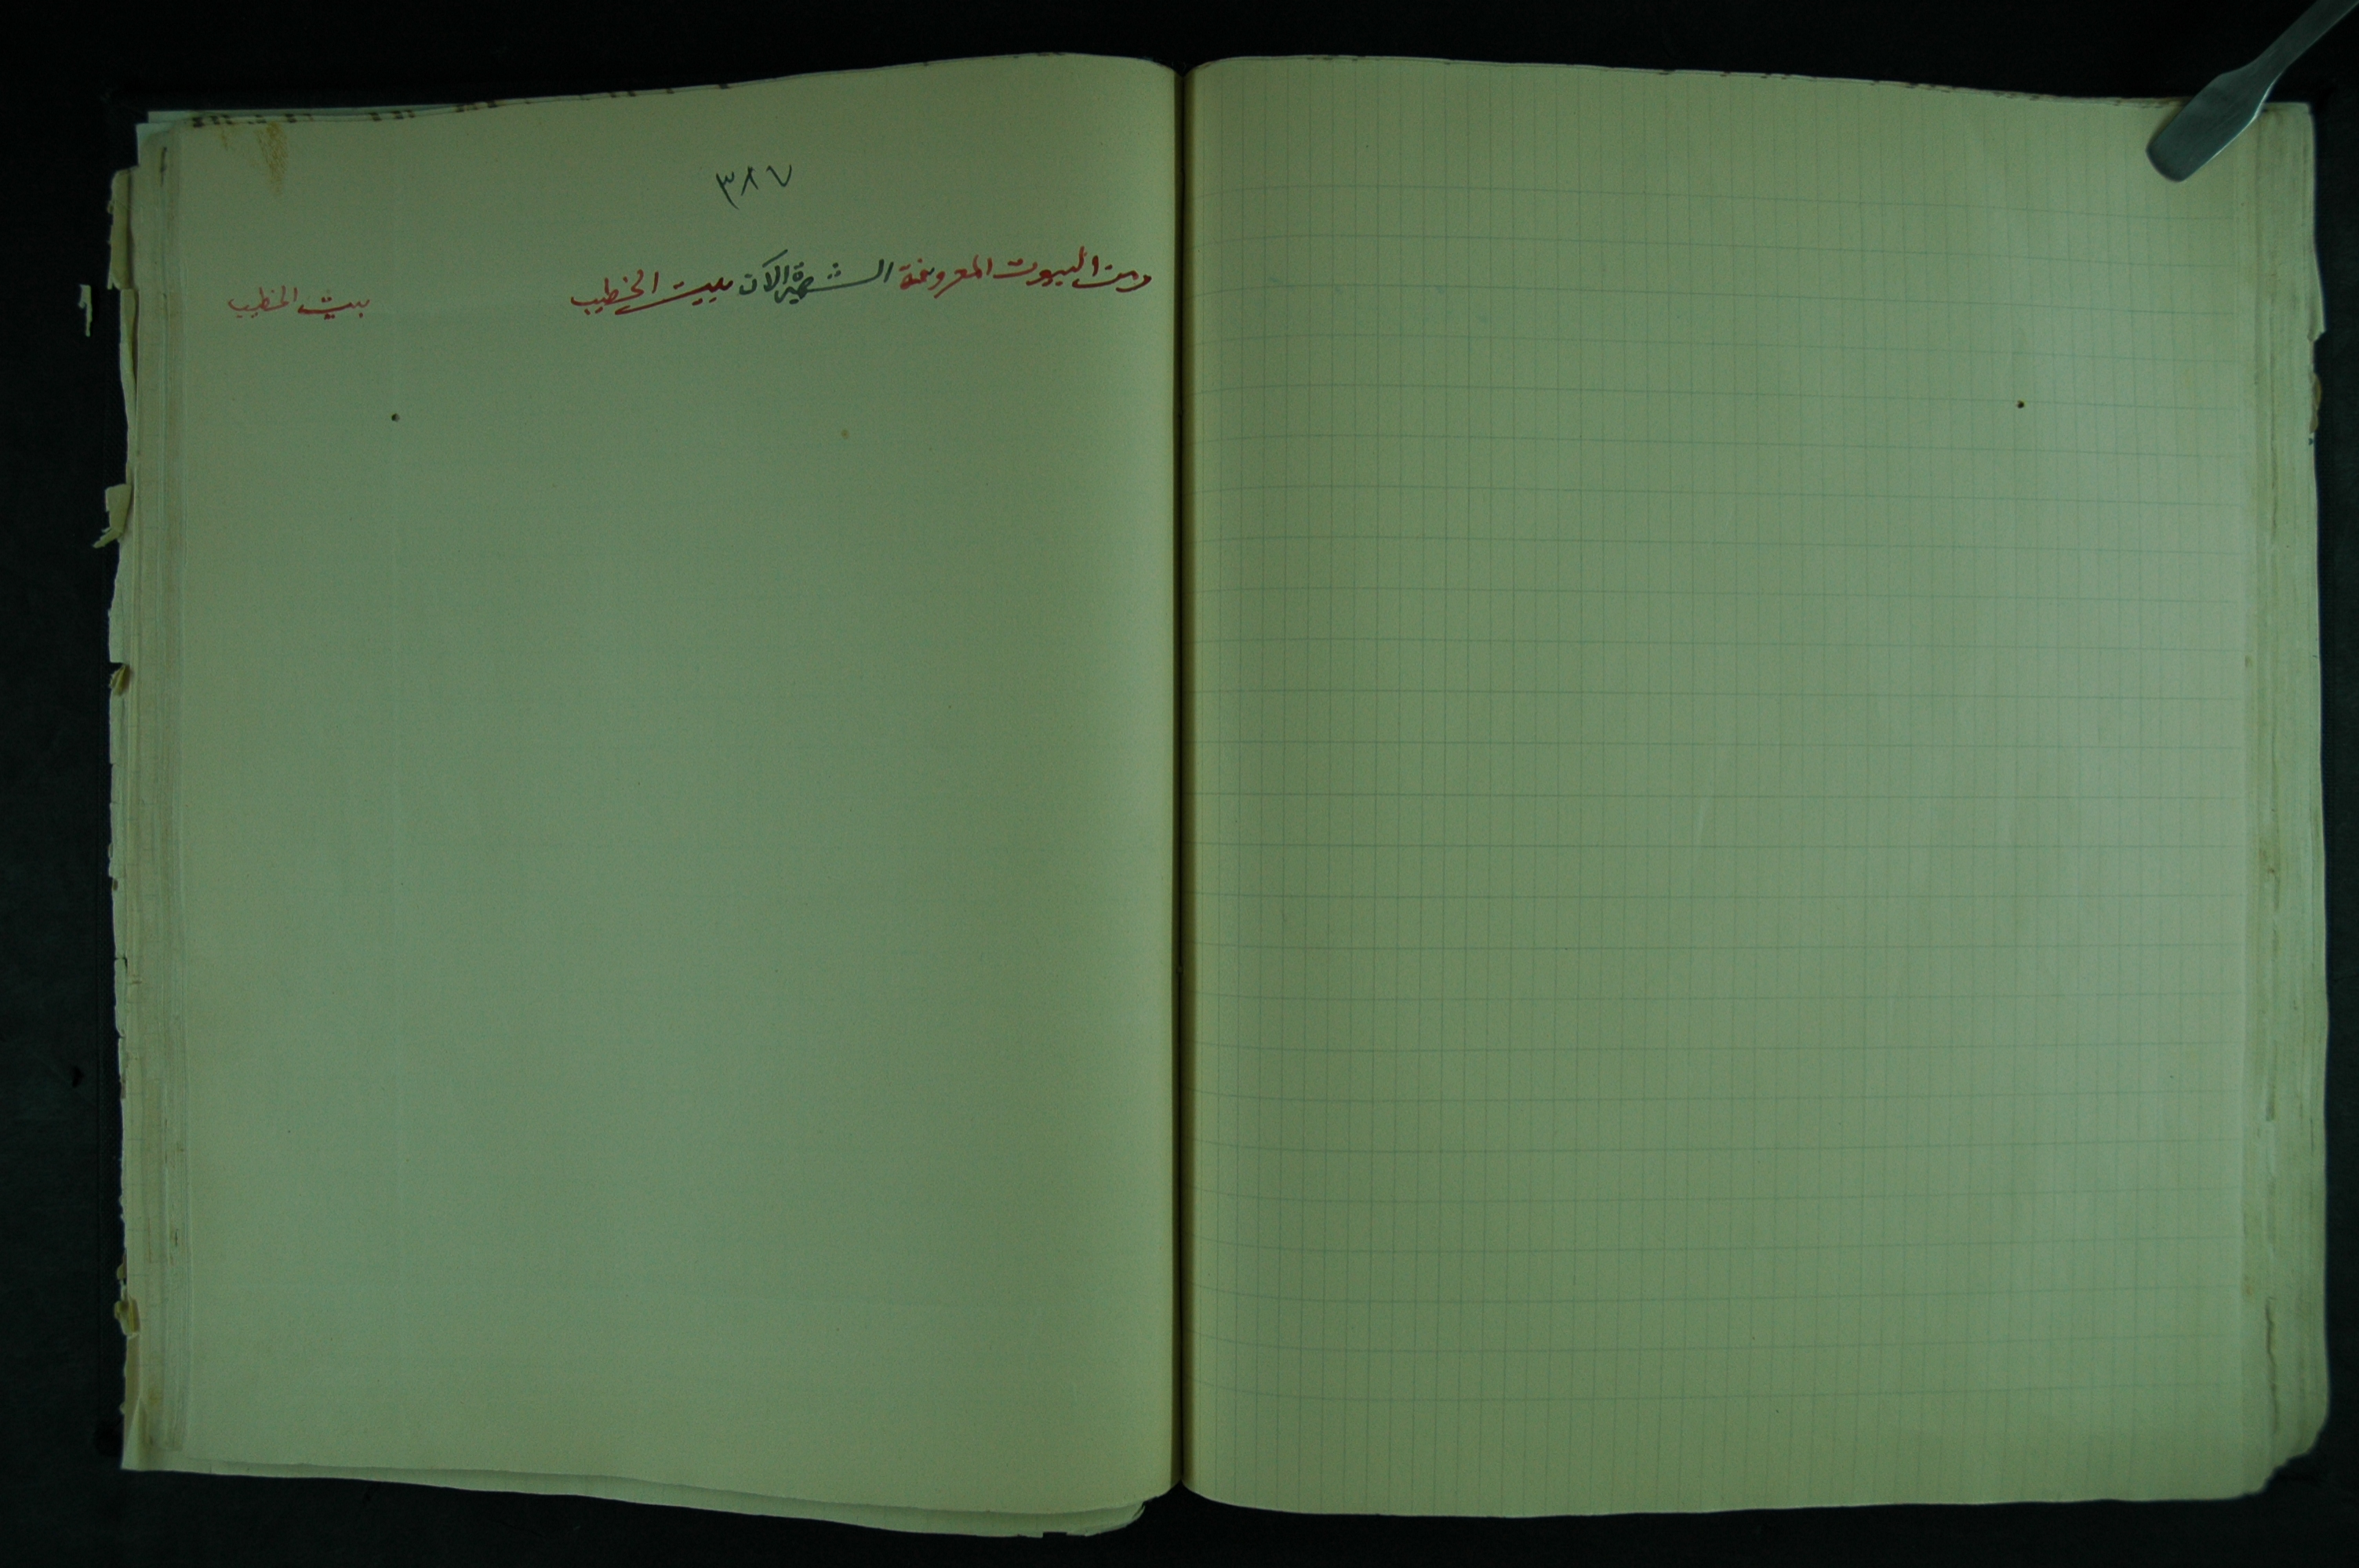 ٣٨٧
ومن البيوت المعروفة الشهيرة الآن ببيت الخطيب
بيت الخطيب